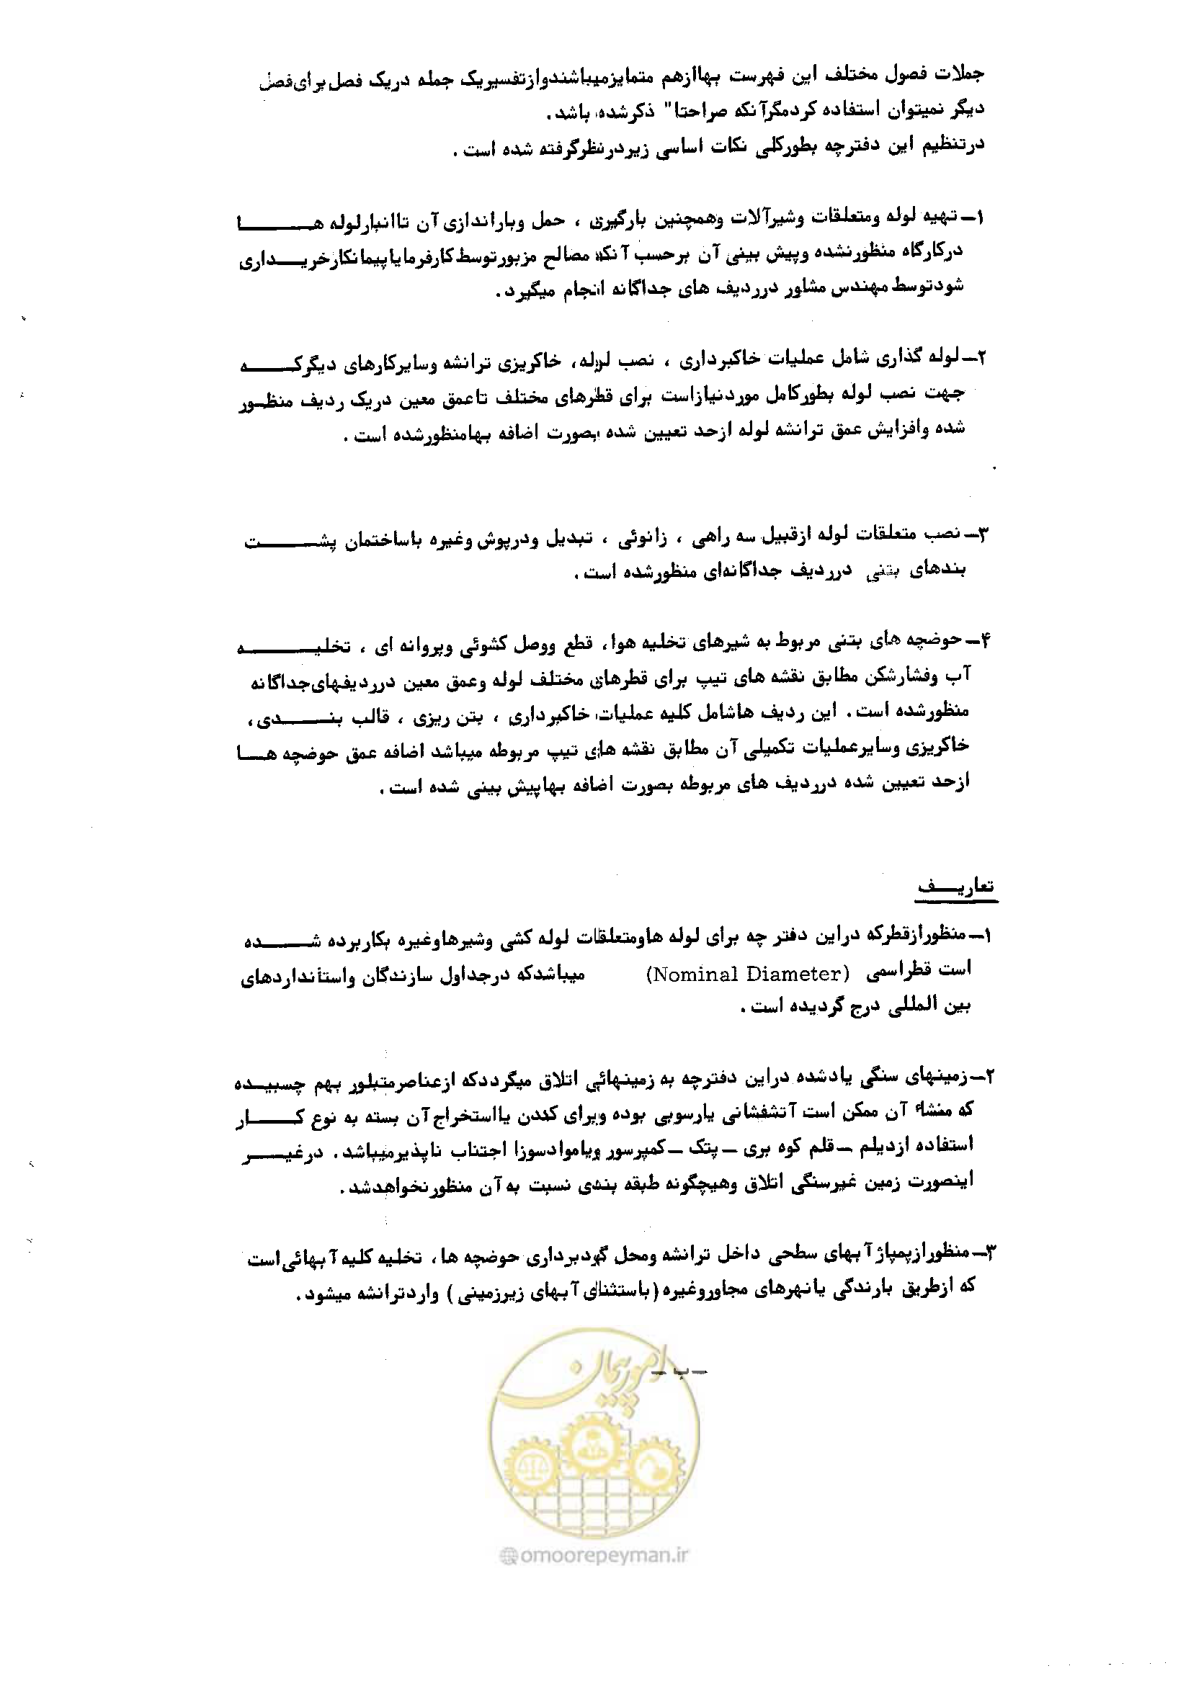 جملات فصول مختلف این فهرست بهاازهم متمایزمیباشندوازتفسیریک جمله دریک فصل برای فصل
دیگر نمیتوان استفاده کردمگرآنکه صراحتا" ذکرشده باشد.
درتنظیم این دفترچه بطورکلی نکات اساسی زیردرنظرگرفته شده است.
۱ـ تهیه لوله ومتعلقات وشیرآلات وهمچنین بارگیری ، حمل وباراندازی آن تاانبارلوله هـــــا
درکارگاه منظورنشده وپیش بینی آن برحسب آنکه مصالح مزبورتوسط کارفرمایاپیمانکارخریـــداری
شودتوسط مهندس مشاور درردیف های جداگانه انجام میگیرد.
۲ـ لوله گذاری شامل عملیات خاکبرداری ، نصب لوله، خاکریزی ترانشه وسایرکارهای دیگرکـــه
جهت نصب لوله بطورکامل موردنیازاست برای قطرهای مختلف تاعمق معین دریک ردیف منظـور
شده وافزایش عمق ترانشه لوله ازحد تعیین شده بصورت اضافه بهامنظورشده است.
۳ـ نصب متعلقات لوله ازقبیل سه راهی ، زانوئی ، تبدیل ودرپوش وغیره باساختمان پشـــــت
بندهای بتنی درردیف جداگانه‌ای منظورشده است.
۴ـ حوضچه های بتنی مربوط به شیرهای تخلیه هوا، قطع ووصل کشوئی وپروانه ای ، تخلیـــــه
آب وفشارشکن مطابق نقشه های تیپ برای قطرهای مختلف لوله وعمق معین درردیفهای‌جداگانه
منظورشده است. این ردیف هاشامل کلیه عملیات خاکبرداری ، بتن ریزی ، قالب بنـــدی،
خاکریزی وسایرعملیات تکمیلی آن مطابق نقشه های تیپ مربوطه میباشد اضافه عمق حوضچه هـــا
ازحد تعیین شده درردیف های مربوطه بصورت اضافه بهاپیش بینی شده است.
تعاریـــف
۱ـ منظورازقطرکه دراین دفتر چه برای لوله هاومتعلقات لوله کشی وشیرهاوغیره بکاربرده شـــــده
است قطراسمی (Nominal Diameter) میباشدکه درجداول سازندگان واستانداردهای
بین المللی درج گردیده است.
۲ـ زمینهای سنگی یادشده دراین دفترچه به زمینهائی اتلاق میگرددکه ازعناصرمتبلور بهم چسبیـــده
که منشاء آن ممکن است آتشفشانی یارسوبی بوده وبرای کندن یااستخراج آن بسته به نوع کـــــار
استفاده ازدیلم ـ قلم کوه بری ـ پتک ـ کمپرسور ویاموادسوزا اجتناب ناپذیرمیباشد. درغیـــر
اینصورت زمین غیرسنگی اتلاق وهیچگونه طبقه بندی نسبت به آن منظورنخواهدشد.
۳ـ منظورازپمپاژ آبهای سطحی داخل ترانشه ومحل گودبرداری حوضچه ها ، تخلیه کلیه آبهائی است
که ازطریق بارندگی یانهرهای مجاوروغیره (باستثنای آبهای زیرزمینی) واردترانشه میشود.
ـ ب ـ
امور پیمان
omoorepeyman.ir